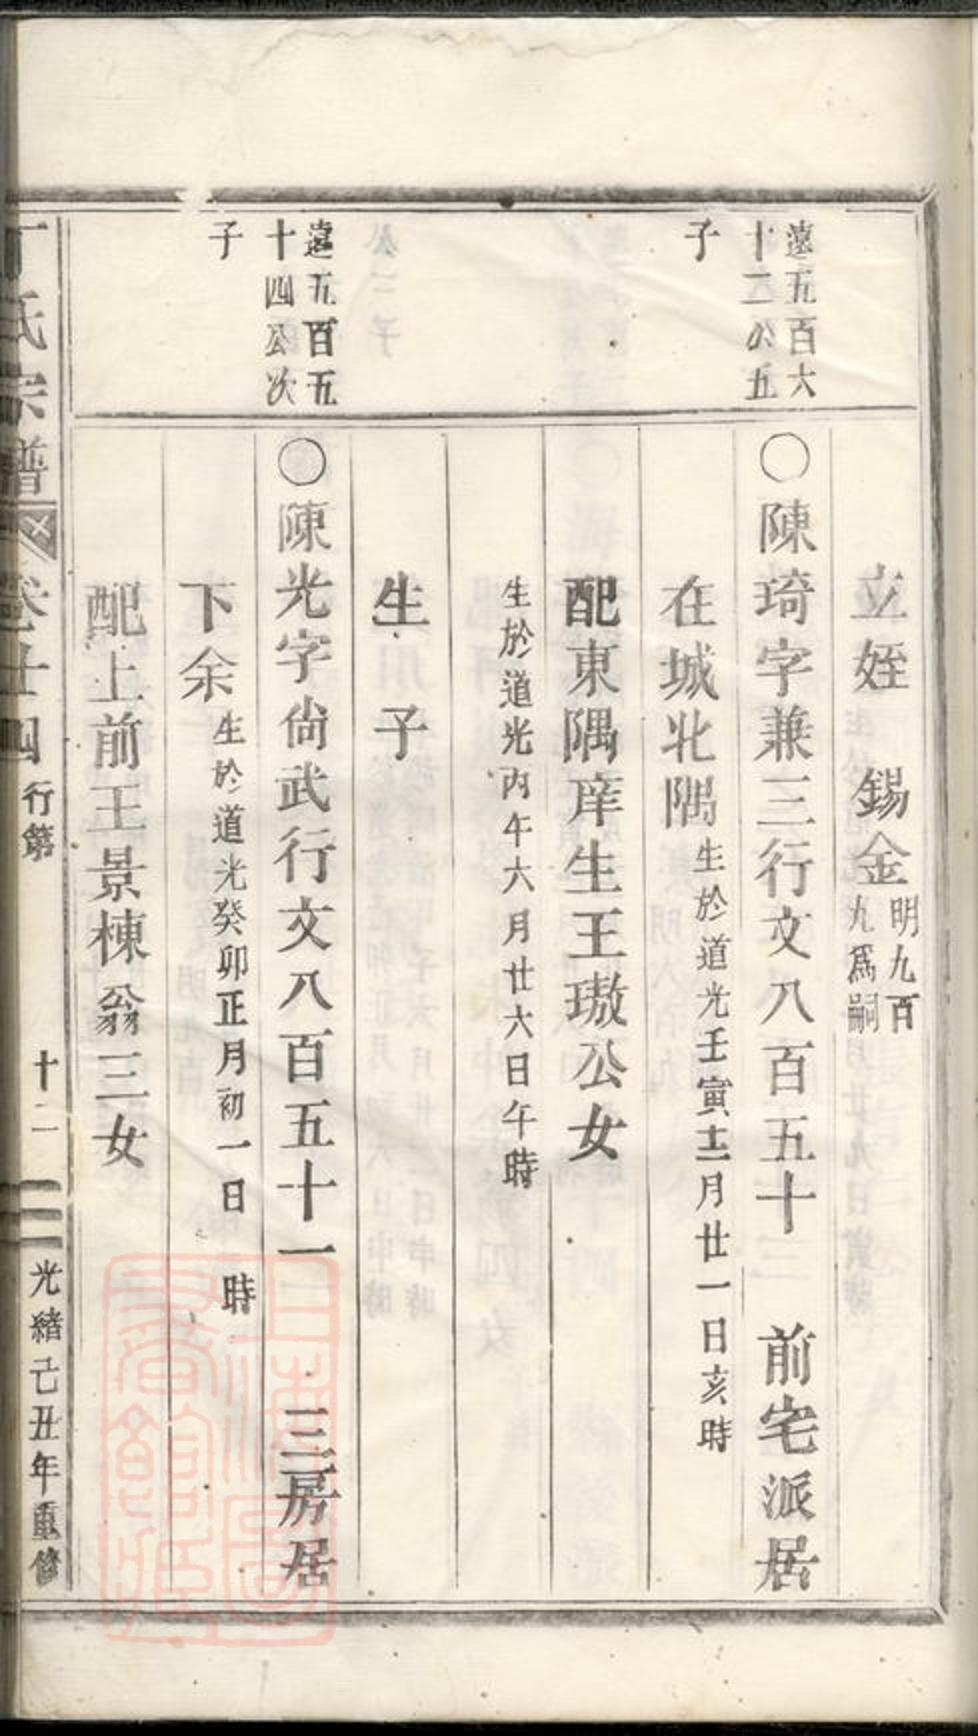 立姪　錫金明九百
九爲嗣
遠五百六
十二公五
子
〇陳琦字兼三行文八百五十　前宅派居
在城北隅生於道光壬寅十二月廿一日亥時
配東隅庠生王璈公女
生於道光丙午六月廿六日午時
生　子
遠五百五
十四公次
子
〇陳光字尙武行文八百五十一　三房居
下余生於道光癸卯正月初一日　時
配上前王景棟翁三女
丁氏宗譜　卷廿四　行第　十二　光緒己丑年重修
上海圖書館藏